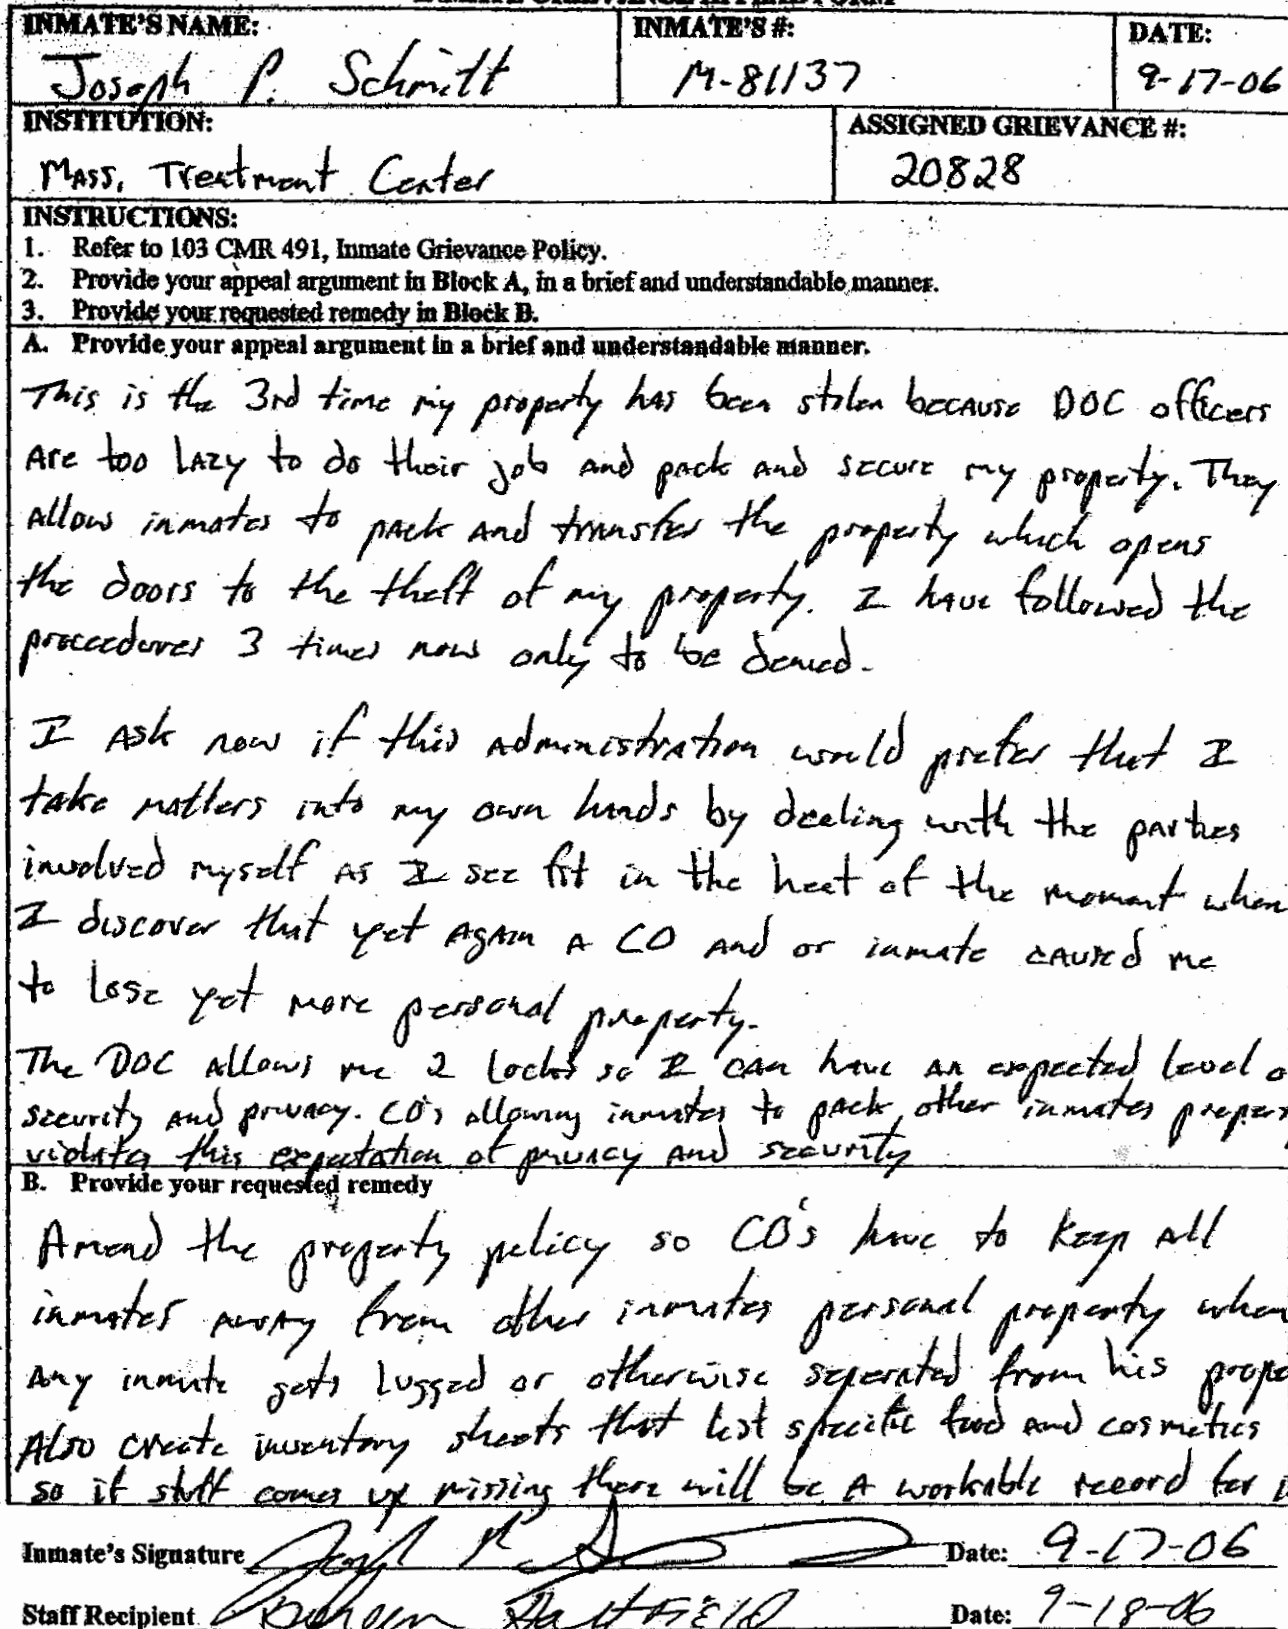 INMATE'S NAME: INMATE'S #: DATE:
Joseph P. Schmitt M-81137 9-17-06
INSTITUTION: ASSIGNED GRIEVANCE #:
Mass. Treatment Center 20828
INSTRUCTIONS:
1. Refer to 103 CMR 491, Inmate Grievance Policy.
2. Provide your appeal argument in Block A, in a brief and understandable manner.
3. Provide your requested remedy in Block B.
A. Provide your appeal argument in a brief and understandable manner.
This is the 3rd time my property has been stolen because DOC officers
are too lazy to do their job and pack and secure my property. They
allow inmates to pack and transfer the property which opens
the doors to the theft of my property. I have followed the
proceedures 3 times now only to be denied.
I ask now if this administration would prefer that I
take matters into my own hands by dealing with the parties
involved myself as I see fit in the heat of the moment when
I discover that yet again a CO and or inmate caused me
to lose yet more personal property.
The DOC allows me 2 locks so I can have an expected level o
security and privacy. CO's allowing inmates to pack other inmates proper
violates this expectation of privacy and security
B. Provide your requested remedy
Amend the property policy so CO's have to keep all
inmates away from other inmates personal property when
any inmate gets lugged or otherwise seperated from his prope
Also create inventory sheets that list specific food and cosmetics
so if stuff comes up missing there will be a workable record for
Inmate's Signature Date: 9-17-06
Staff Recipient Date: 9-18-06